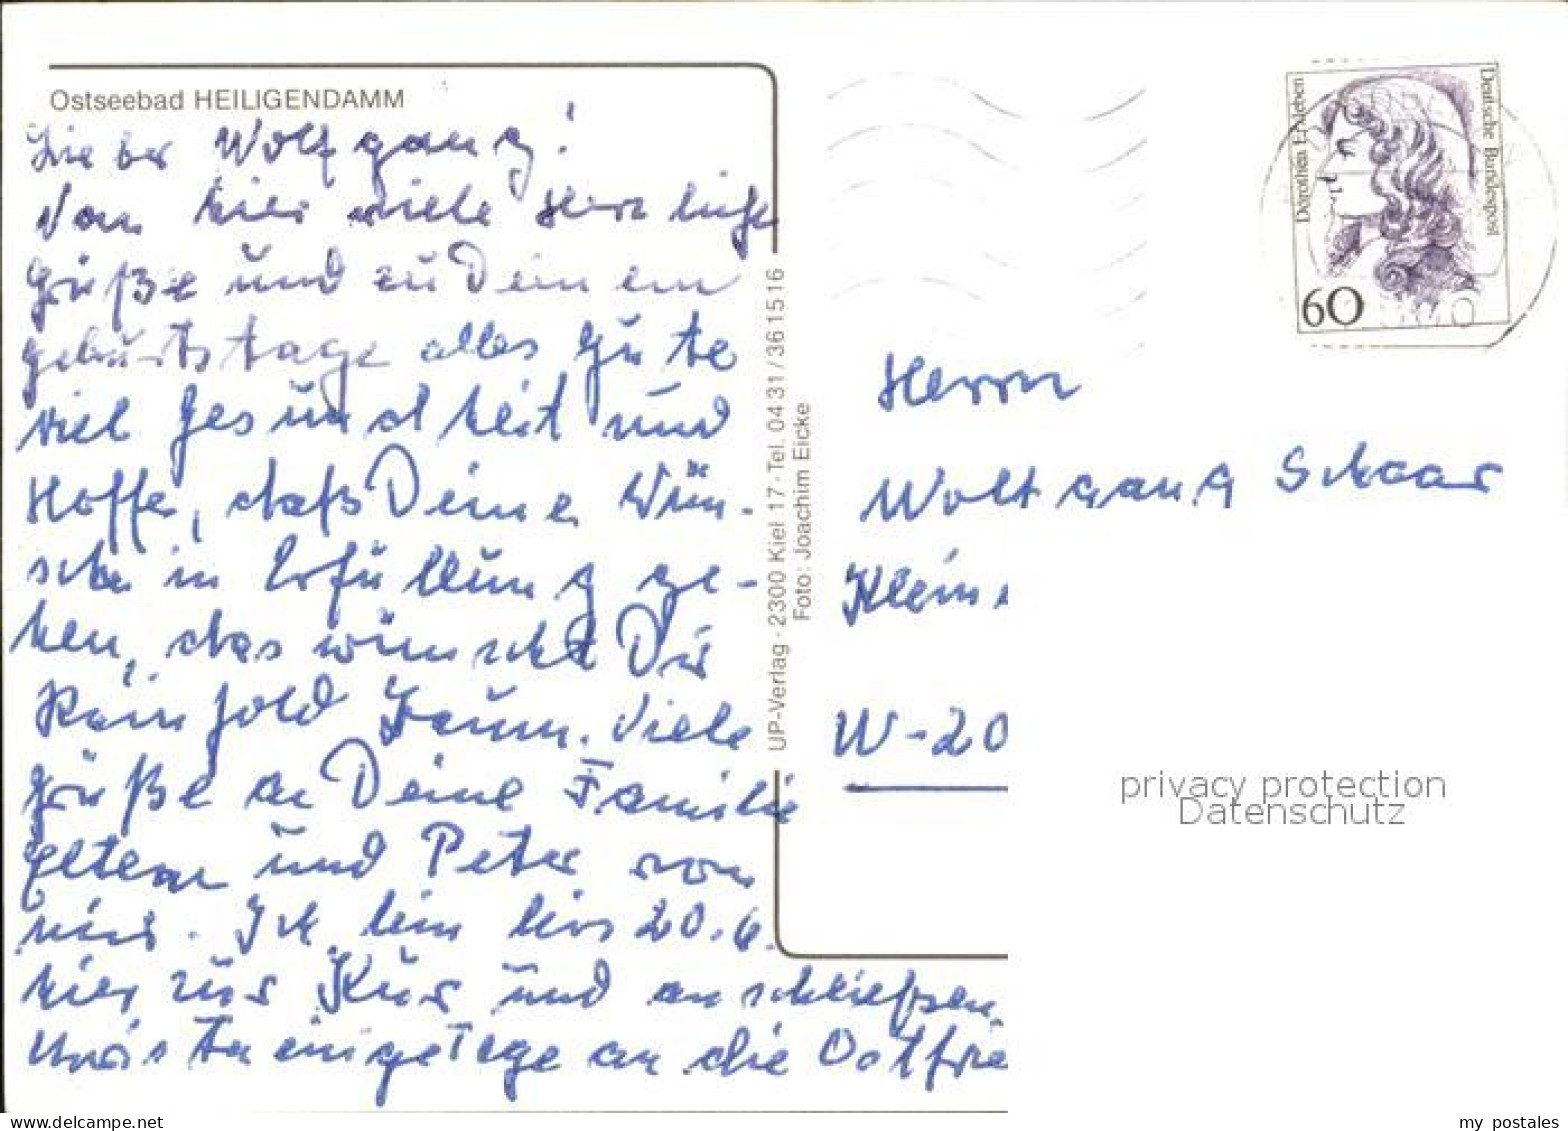 Ostseebad HEILIGENDAMM
Lieber Wolfgang!
Von hier viele Herzliche
Grüße und zu Deinem
Geburtstage alles Gute
viel Gesundheit und
Hoffe, daß Deine Wün-
sche in Erfüllung ge-
hen, das wünscht Dir
Reinhold. Viele
Grüße an Deine Familie
Eltern und Peter von
mir. Ich bin bis 20.6.
hier zur Kur und anschließen
einige Tage an die Ostfrie
UP-Verlag · 2300 Kiel 17 · Tel. 0431/361516
Foto: Joachim Eicke
Dorothea Erxleben
Deutsche Bundespost
60
Herrn
Wolfgang Schaar
Klein
W-20
privacy protection
Datenschutz
my postales